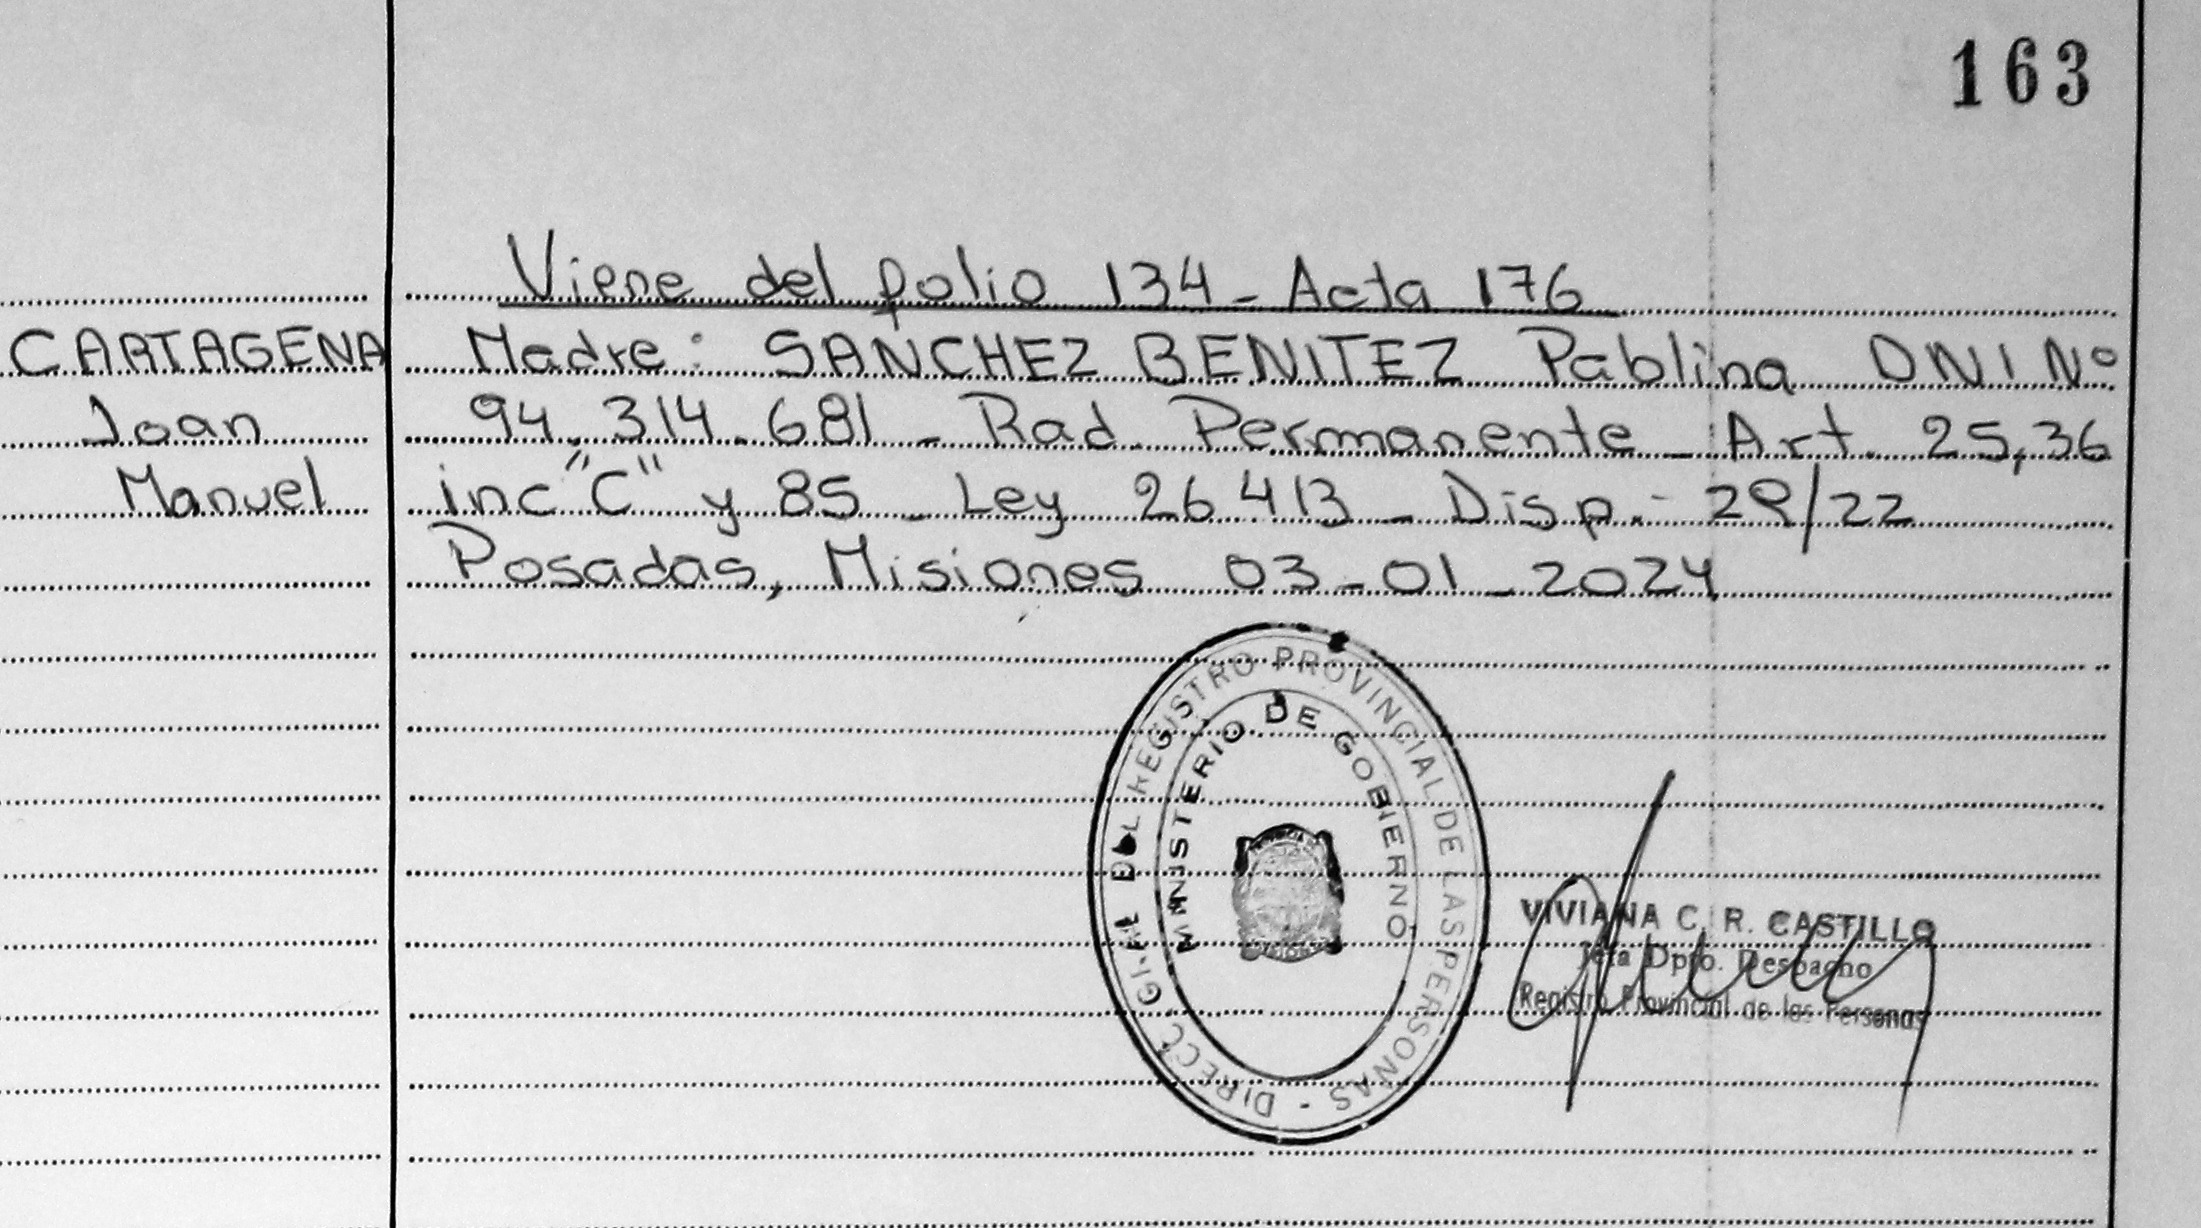 163
Viene del folio 134 - Acta 176
CARTAGENA
Joan
Manuel
Madre: SANCHEZ BENITEZ Pablina DNI Nº
94.314.681 - Rad. Permanente - Art. 25,36
inc "C" y 85 - Ley 26413 - Disp.- 29/22
Posadas, Misiones 03-01-2024
DIRECC. GRAL DEL REGISTRO PROVINCIAL DE LAS PERSONAS -
MINISTERIO DE GOBIERNO
VIVIANA C. R. CASTILLO
Jefa Dpto. Despacho
Registro Provincial de las Personas